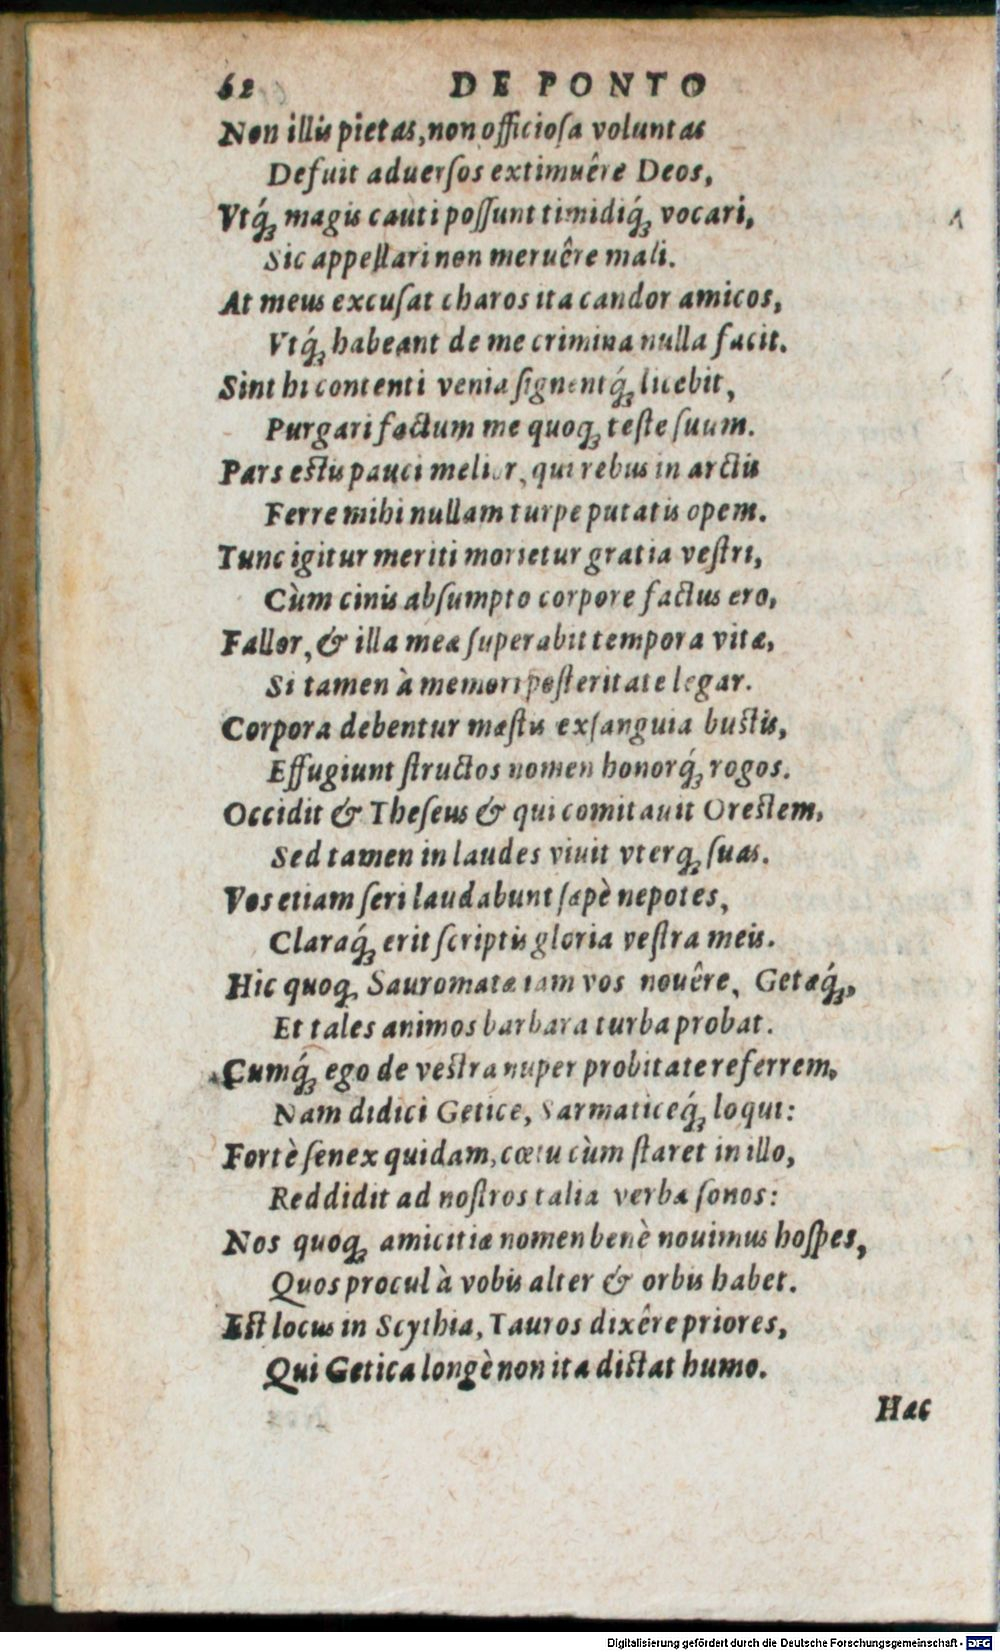 62 DE PONTO
Non illis pietas, non officiosa voluntas
Defuit aduersos extimuêre Deos,
Vtq́ꝫ magis cauti possunt timidiq́ꝫ vocari,
Sic appellari non meruêre mali.
At meus excusat charos ita candor amicos,
Vtq́ꝫ habeant de me crimina nulla facit.
Sint hi contenti venia signentq́ꝫ licebit,
Purgari factum me quoqꝫ teste suum.
Pars estis pauci melior, qui rebus in arctis
Ferre mihi nullam turpe putatis opem.
Tunc igitur meriti morietur gratia vestri,
Cùm cinis absumpto corpore factus ero,
Fallor, & illa meæ superabit tempora vitæ,
Si tamen à memori posteritate legar.
Corpora debentur mæstis exsanguia bustis,
Effugiunt structos nomen honorq́ꝫ rogos.
Occidit & Theseus & qui comitauit Orestem,
Sed tamen in laudes viuit vterqꝫ suas.
Vos etiam seri laudabunt sæpè nepotes,
Claraq́ꝫ erit scriptis gloria vestra meis.
Hic quoqꝫ Sauromatæ iam vos nouêre, Getæq́ꝫ,
Et tales animos barbara turba probat.
Cumq́ꝫ ego de vestra nuper probitate referrem,
Nam didici Getice, Sarmaticeq́ꝫ loqui:
Fortè senex quidam, cœtu cùm staret in illo,
Reddidit ad nostros talia verba sonos:
Nos quoqꝫ amicitiæ nomen benè nouimus hospes,
Quos procul à vobis alter & orbis habet.
Est locus in Scythia, Tauros dixêre priores,
Qui Getica longè non ita distat humo.
Hac
Digitalisierung gefördert durch die Deutsche Forschungsgemeinschaft - DFG